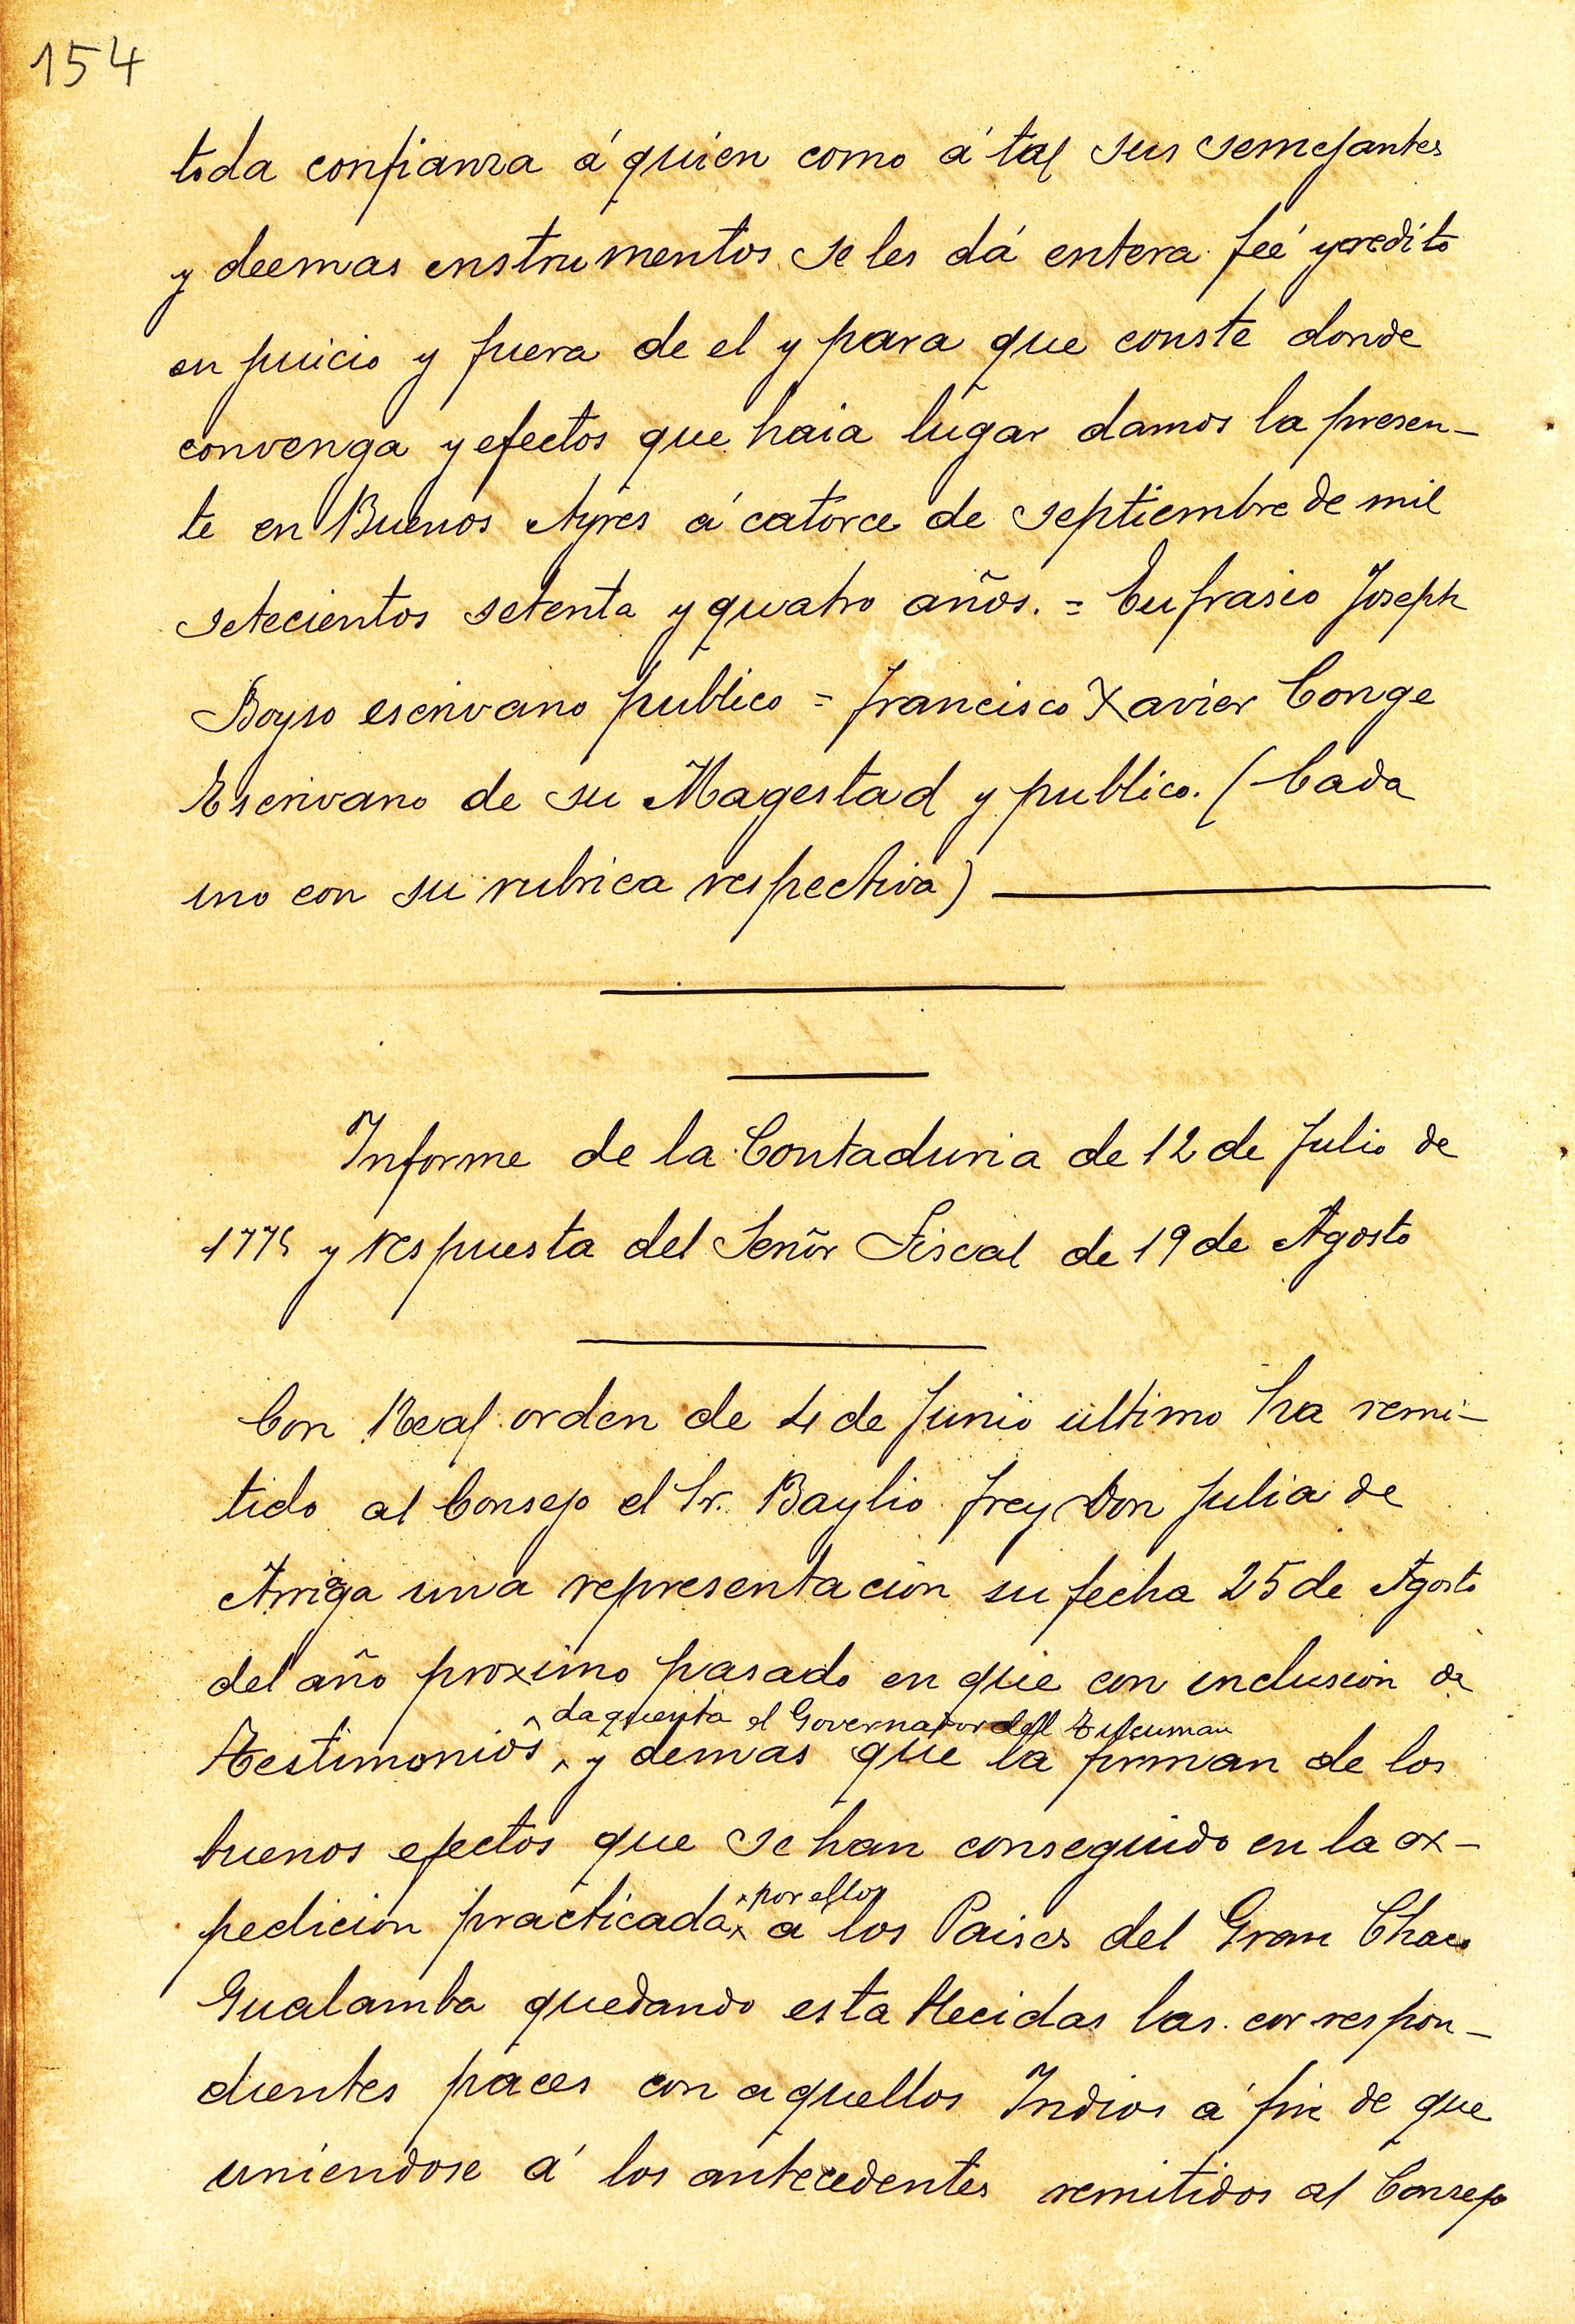 154
toda confianza á quien como á tal sus semejantes
y deemas enstrumentos se les dá entera feé y credito
en juicio y fuera de el y para que conste donde
convenga y efectos que haia lugar damos la presen-
te en Buenos Ayres á catorce de septiembre de mil
setecientos setenta y quatro años. = Eufrasio Joseph
Boyso escrivano publico = francisco Xavier Conge
Escrivano de su Magestad y publico. (Cada
uno con su rubrica respectiva)
Informe de la Contaduria de 12 de Julio de
1775 y respuesta del Señor Fiscal de 19 de Agosto
Con Real orden de 4 de Junio ultimo ha remi-
tido al Consejo el Sr. Baylio frey Don Julia de
Arriga una representacion su fecha 25 de Agosto
del año proximo pasado en que con inclusion de
da quenta el Governador del Tucuman
Testimonios y demas que la firman de los
buenos efectos que se han conseguido en la ex-
por ellos
pedicion practicada á los Paises del Gran Chaco
Gualamba quedando establecidas las correspon-
dientes paces con aquellos Indios á fin de que
uniendose á los antecedentes remitidos al Consejo